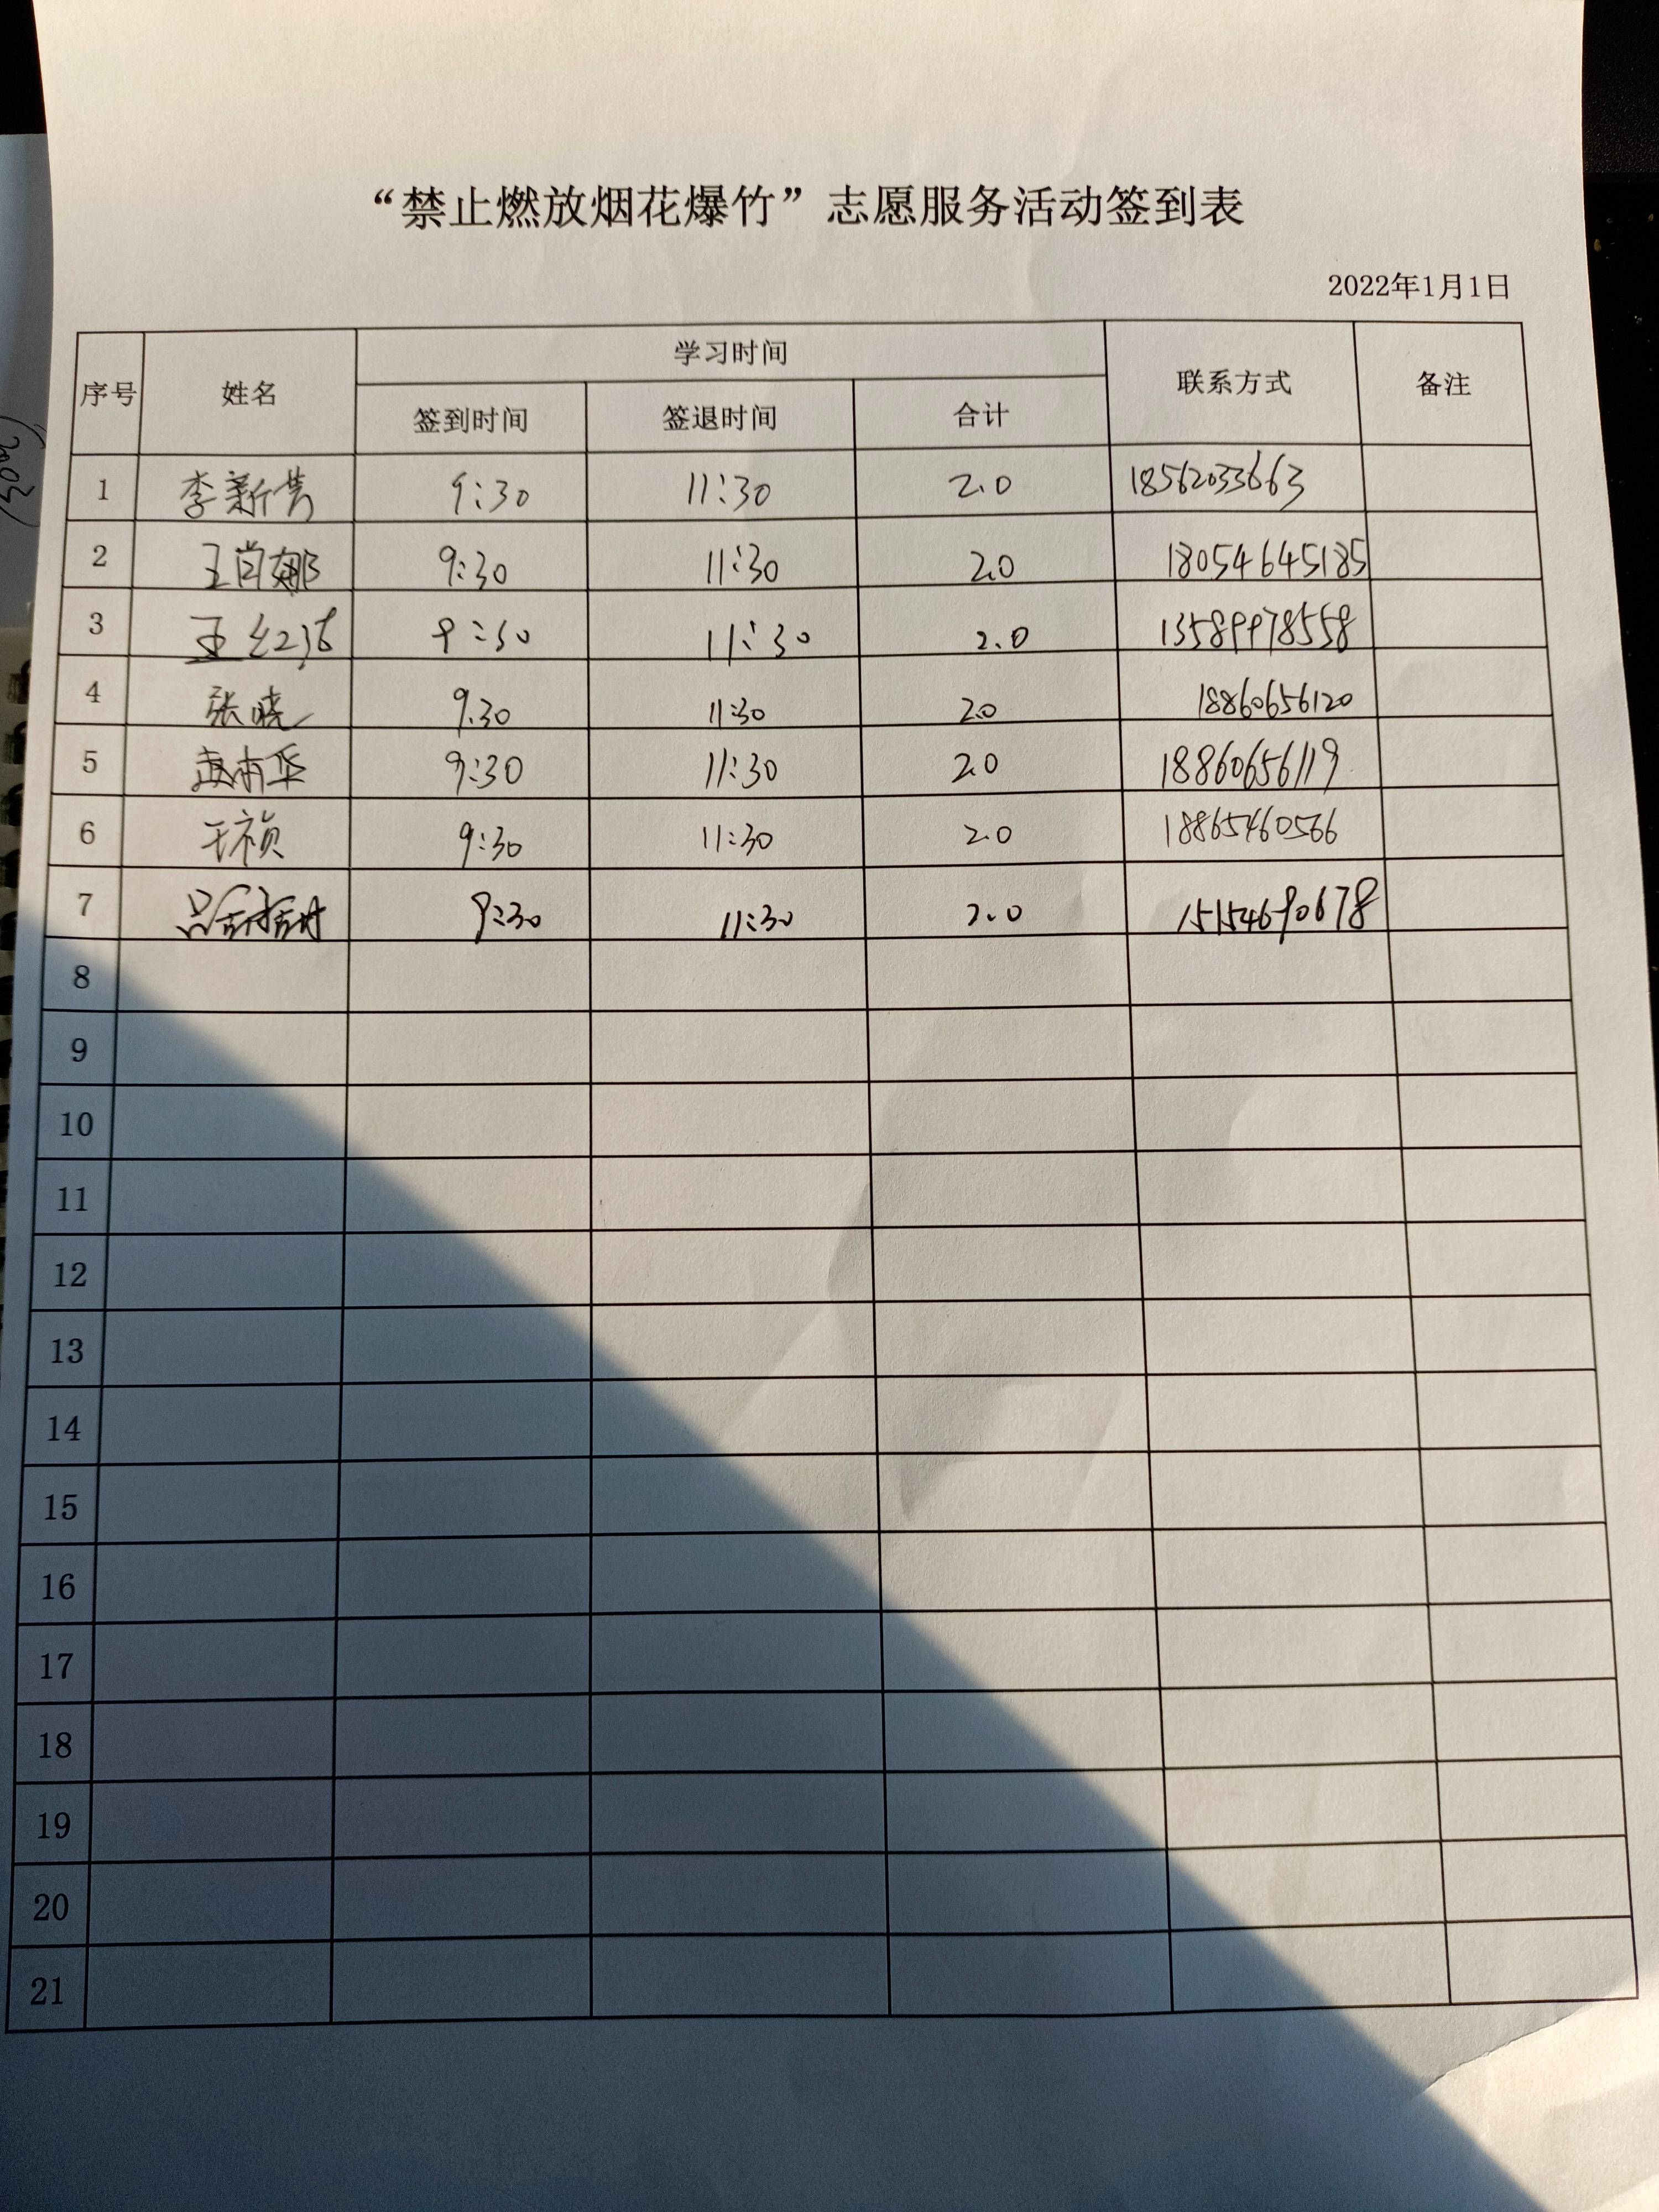 “禁止燃放烟花爆竹”志愿服务活动签到表
2022年1月1日
序号 姓名 学习时间 联系方式 备注
签到时间 签退时间 合计
1 李新芳 9:30 11:30 2.0 18562033663
2 王肖娜 9:30 11:30 2.0 18054645185
3 王红 9:30 11:30 2.0 13589978558
4 张晓 9.30 11:30 2.0 18860656120
5 9:30 11:30 2.0 18860656119
6 王祯 9:30 11:30 2.0 18865460566
7 吕甜甜 9:30 11:30 2.0 15154690678
8
9
10
11
12
13
14
15
16
17
18
19
20
21